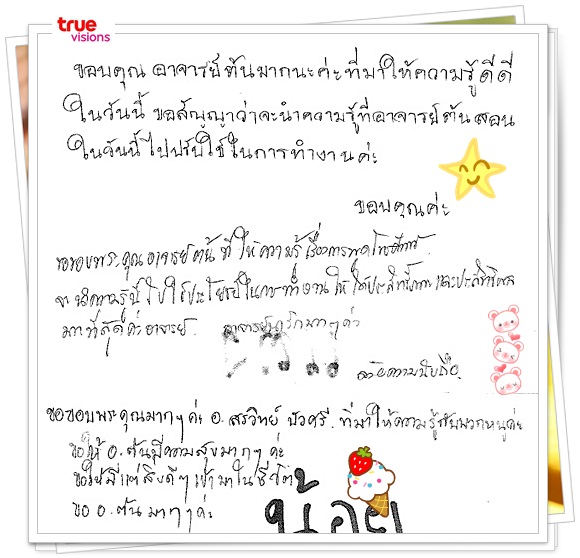 true
visions
ขอบคุณ อาจารย์ต้นมากนะค่ะที่มาให้ความรู้ดีดี
ในวันนี้ ขอสัญญาว่าจะนำความรู้ที่อาจารย์ต้นสอน
ในวันนี้ไปปรับใช้ในการทำงานค่ะ
ขอบคุณค่ะ
ขอขอบพระคุณอาจารย์ต้น ที่ให้ความรู้ เรื่องการพูดโทรศัพท์
จะนำความรู้นี้ไปใช้ประโยชน์ในการทำงานให้ได้ประสิทธิภาพและประสิทธิผล
มากที่สุดค่ะอาจารย์ อาจารย์น่ารักมากๆค่ะ
ด้วยความนับถือ
ขอขอบพระคุณมากๆค่ะ อ. สรวิทย์ บัวศรี ที่มาให้ความรู้กับพวกหนูค่ะ
ขอให้ อ.ต้นมีความสุขมากๆ ค่ะ
ขอให้มีแต่สิ่งดีๆเข้ามาในชีวิต
อ.ต้น มากๆค่ะ
น้อย